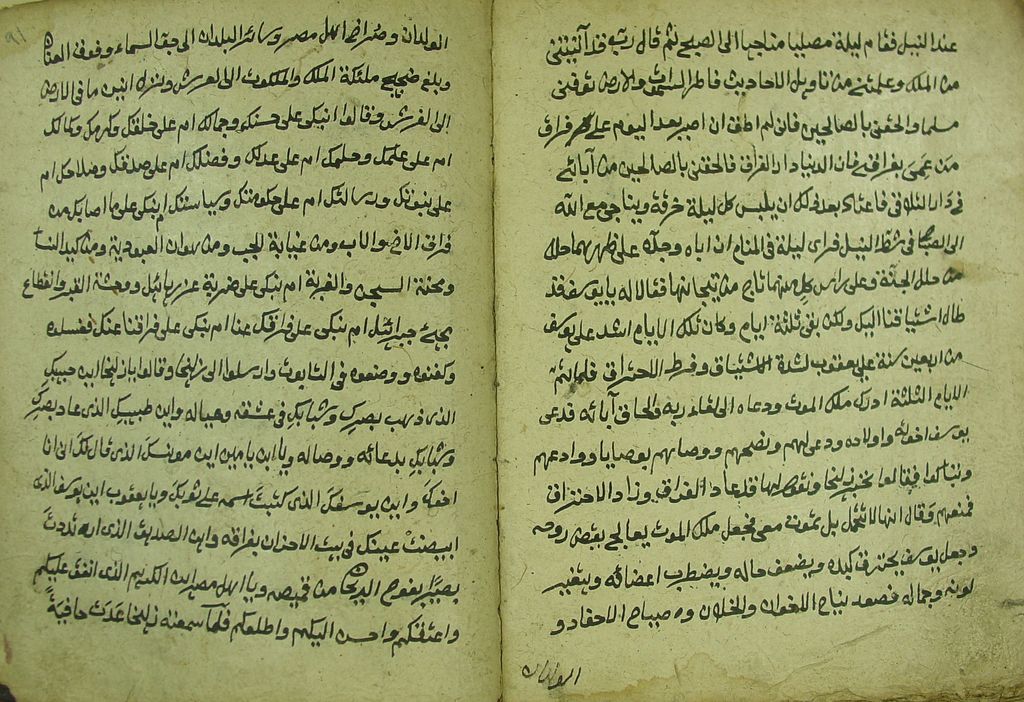 عند النيل فقام ليلة مصليا مناجيا الى الصبح ثم قال رب قد آتيتني
من الملك وعلمتني من تأويل الاحاديث فاطر السموات والارض توفني
مسلما والحقني بالصالحين فاني لم اطق ان اصبر بعد اليوم على فراق
من بفراقي فان الدنيا دار الفراق فالحقني بالصالحين من آبائي
في دار التلاقي بعد ذلك ان يلبس كل ليلة خرقة ويناجي مع الله
الى الصباح في شط النيل فراى ليلة في المنام ان اباه وجده على ظهرهما حلة
من حلل الجنة وعلى راس كل منهما تاج من تيجانها فقالا له يا يوسف قد
طال اشتياقنا اليك ولكن بقي ثلثة ايام وكان تلك الايام اشد على يوسف
من اربعين سنة على يعقوب لشدة الاشتياق وفرط الاحتراق فلما تم
الايام الثلثة ادرك ملك الموت ودعاه الى لقاء ربه والحاق آبائه فدعى
يوسف اخوانه واولاده ودعى لهم ونصحهم ووصاهم بوصايا ووادعهم
فقالوا نخبر زليخا قد عاد الفراق وزاد الاحتراق
فمنعهم وقال انها لا تتحمل بل تموت معي فجعل ملك الموت يعالج بقبض روحه
وجعل يوسف يحترق كبده ويضعف حاله ويضطرب اعضائه ويتغير
لونه وجماله فصعد نياح الاخوان والخلان وصياح الاحفاد و
الولدان
الولدان وصراخ اهل مصر وسائر البلدان الى جو السماء وفوق العنان
وبلغ ضجيج ملئكة الملك والملكوت الى العرش ونزل انين ما في الارض
الى الفرش وقالوا انبكي على حسنك وجمالك ام على خلقك وكرمك وكمالك
ام على علمك وحلمك ام على عدلك وفضلك ام على صدقك وصلاحك ام
على نبوتك ورسالتك ام على حكومتك وسياستك ام نبكي على ما اصابك من
فراق الاخ والاب ومن غيابة الجب ومن هوان العبودية ومن كيد النساء
ومحنة السجن والغربة ام نبكي على ضربة عزرائيل ووحشة القبر وانقطاع
مجيئ جبرائيل ام نبكي على فراقك عنا ام نبكي على فراقنا عنك فغسلوه
وكفنوه ووضعوه في التابوت وارسلوا الى زليخا وقالوا يا زليخا اين حبيبك
الذي ذهب بصرك وشبابك في عشقه وعياله واين طبيبك الذي عاد بصرك
وشبابك بدعائه ووصاله ويا ابن يامين اين مونسك الذي قال لك اني انا
اخوك واين يوسفك الذي كتبت اسمه على ثوبك ويا يعقوب اين يوسف الذي
ابيضت عينك في بيت الاحزان بفراقه واين الصديق الذي ارتددت
بصيرا بفوح الريحان من قميصه ويا اهل مصر اين الكريم الذي انفق عليكم
واعتقكم واحسن اليكم واطلعكم فلما سمعته زليخا عدت حافية